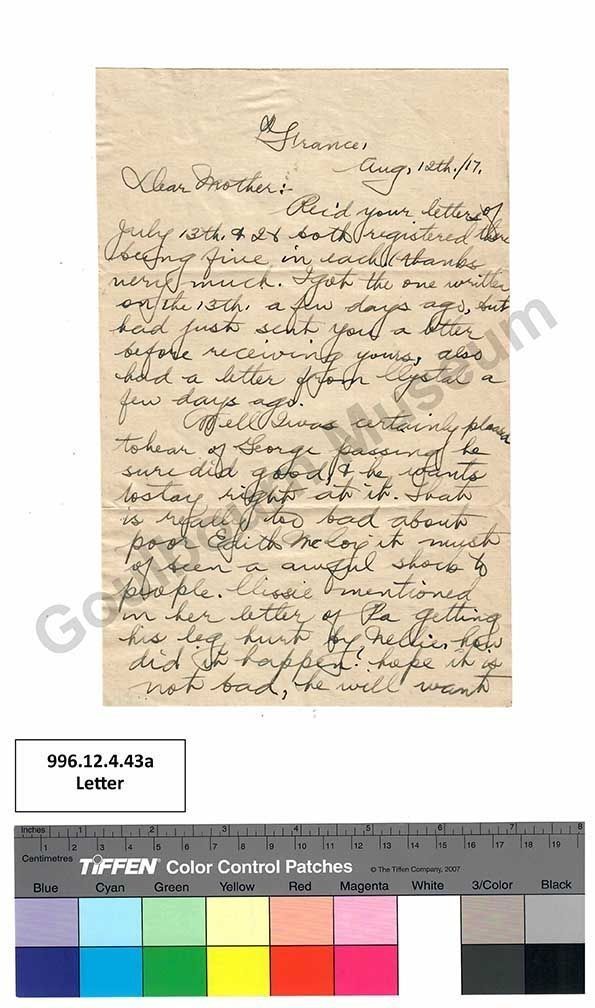 France,
Aug, 12th./17.
Dear Mother:-
Rec'd your letters of
July 13th. & 26 both registered there
being five in each (thanks
very much. I got the one written
on the 13th. a few days ago, but
had just sent you a letter
before receiving yours, also
had a letter from a
few days ago.
Well I was certainly pleased
to hear of George passing, he
sure did good, & he wants
to stay right at it. That
is really too bad about
poor Edith McCoy it must
of seen a awful shock to
people. mentioned
in her letter of Pa getting
his leg hurt by Nellie, how
did it happen? hope it is
not bad, he will want
Goulbourn Museum
996.12.4.43a
Letter
Inches 1 2 3 4 5 6 7 8
Centimetres 1 2 3 4 5 6 7 8 9 10 11 12 13 14 15 16 17 18 19
TIFFEN Color Control Patches © The Tiffen Company, 2007
Blue Cyan Green Yellow Red Magenta White 3/Color Black